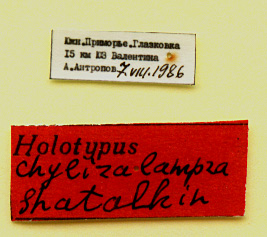 Южн.Приморье.Глазковка
15 км ЮЗ Валентина
А.Антропов 7.VIII.1986
Holotypus
chyliza lampra
shatalkin